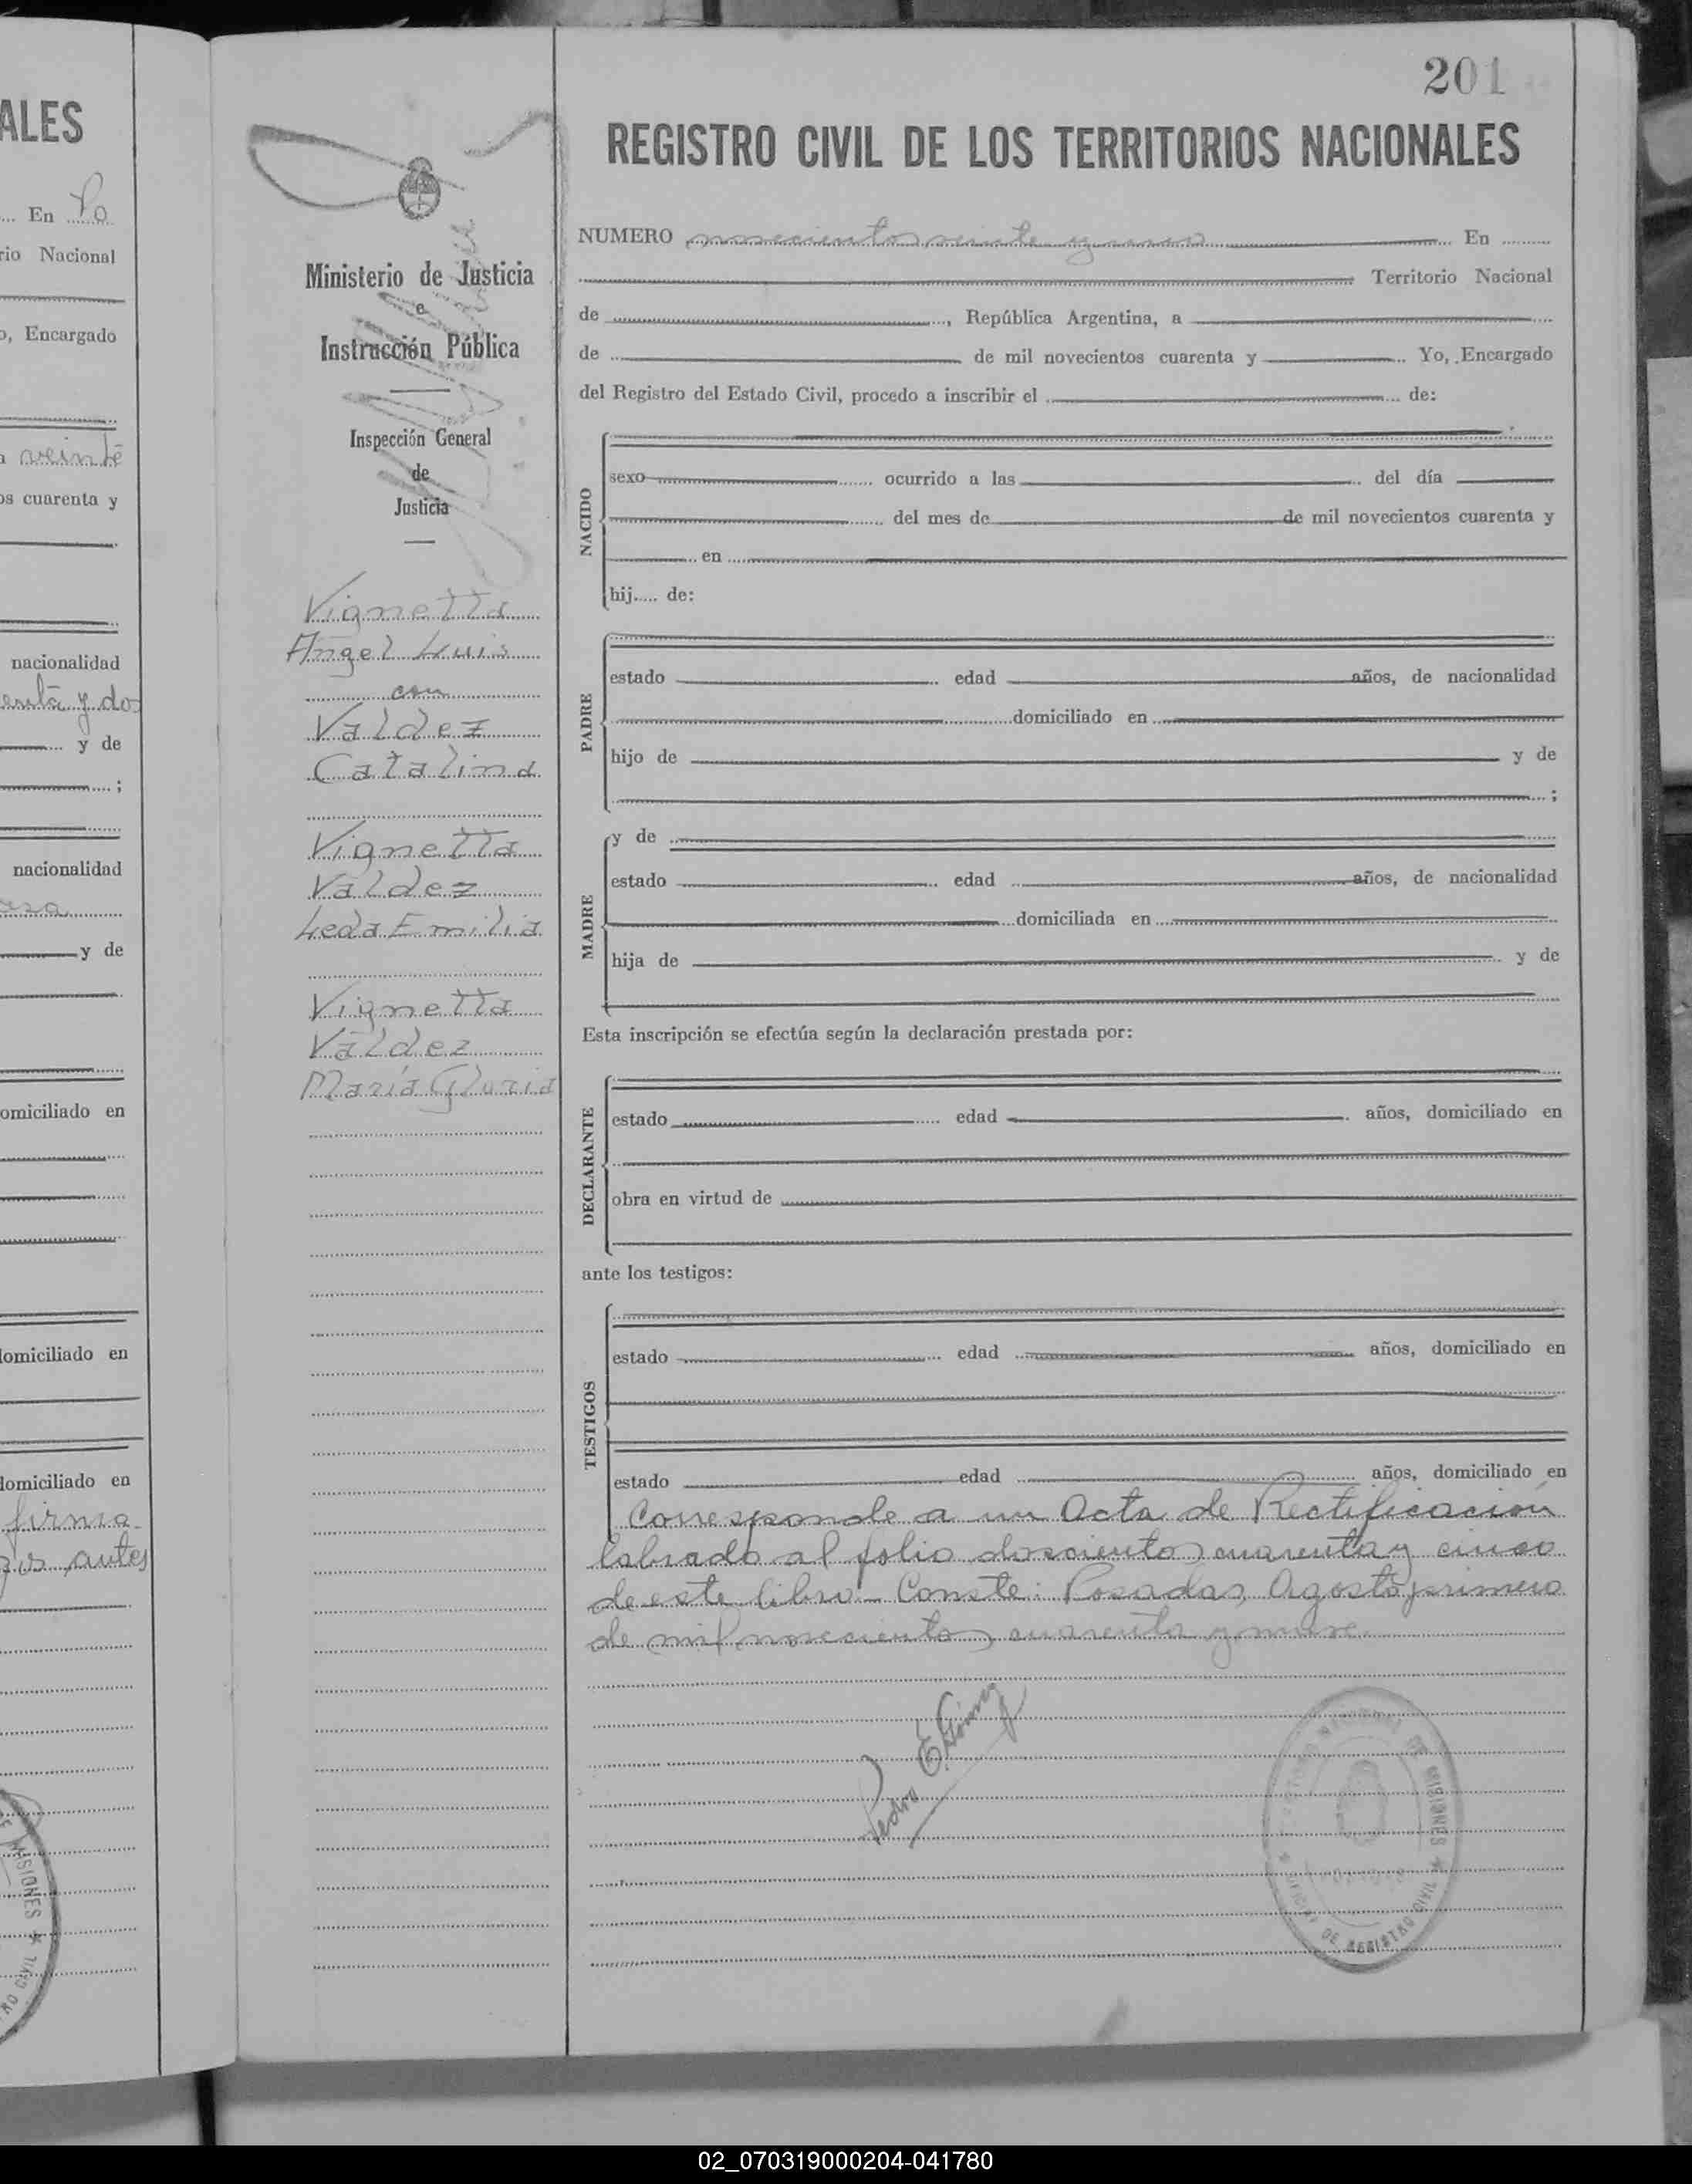 ALES
... En Po
rio Nacional
o, Encargado
a veinte
os cuarenta y
nacionalidad
enta y dos
y de
;
nacionalidad
y de
omiciliado en
domiciliado en
domiciliado en
firma
antes
DE MISIONES
CIVIL
201
Ministerio de Justicia
e
Instrucción Pública
Inspección General
de
Justicia
Vignetta
Angel Luis
con
Valdez
Catalina
Vignetta
Valdez
Leda Emilia
Vignetta
Valdez
María Gloria
REGISTRO CIVIL DE LOS TERRITORIOS NACIONALES
NUMERO novecientos veinte y uno En
Territorio Nacional
de , República Argentina, a
de de mil novecientos cuarenta y Yo, Encargado
del Registro del Estado Civil, procedo a inscribir el de:
NACIDO
sexo ocurrido a las del día
del mes de de mil novecientos cuarenta y
en
hij..... de:
PADRE
estado edad años, de nacionalidad
domiciliado en
hijo de y de
;
MADRE
y de
estado edad años, de nacionalidad
domiciliada en
hija de y de
Esta inscripción se efectúa según la declaración prestada por:
DECLARANTE
estado edad años, domiciliado en
obra en virtud de
ante los testigos:
TESTIGOS
estado edad años, domiciliado en
estado edad años, domiciliado en
Corresponde a un Acta de Rectificación
labrada al folio doscientos cuarenta y cinco
de este libro - Conste: Posadas, Agosto primero
de mil novecientos cuarenta y nueve.
Pedro E. Gómez
DE MISIONES
DE REGISTRO CIVIL
02_070319000204-041780